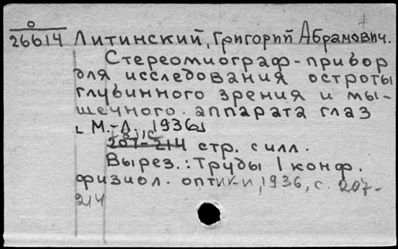 О
26614 Литинский, Григорий Абрамович.
Стереомиограф-прибор
для исследования остроты
глубинного зрения и мы-
шечного аппарата глаз
[М.-Л., 1936]
207-214 стр. с илл.
Вырез.: Труды 1 конф.
физиол. оптики, 1936, с. 207-
214